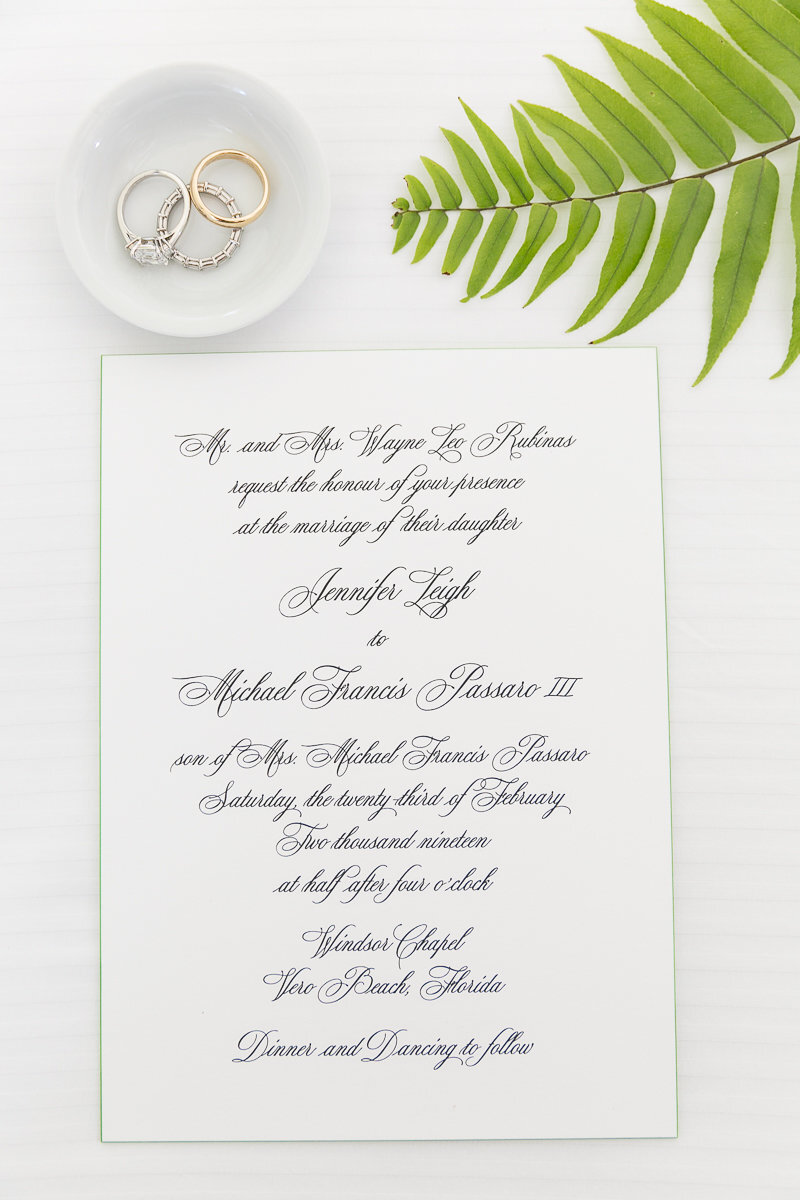 Mr. and Mrs. Wayne Leo Rubinas
request the honour of your presence
at the marriage of their daughter
Jennifer Leigh
to
Michael Francis Passaro III
son of Mrs. Michael Francis Passaro
Saturday, the twenty-third of February
Two thousand nineteen
at half after four o'clock
Windsor Chapel
Vero Beach, Florida
Dinner and Dancing to follow